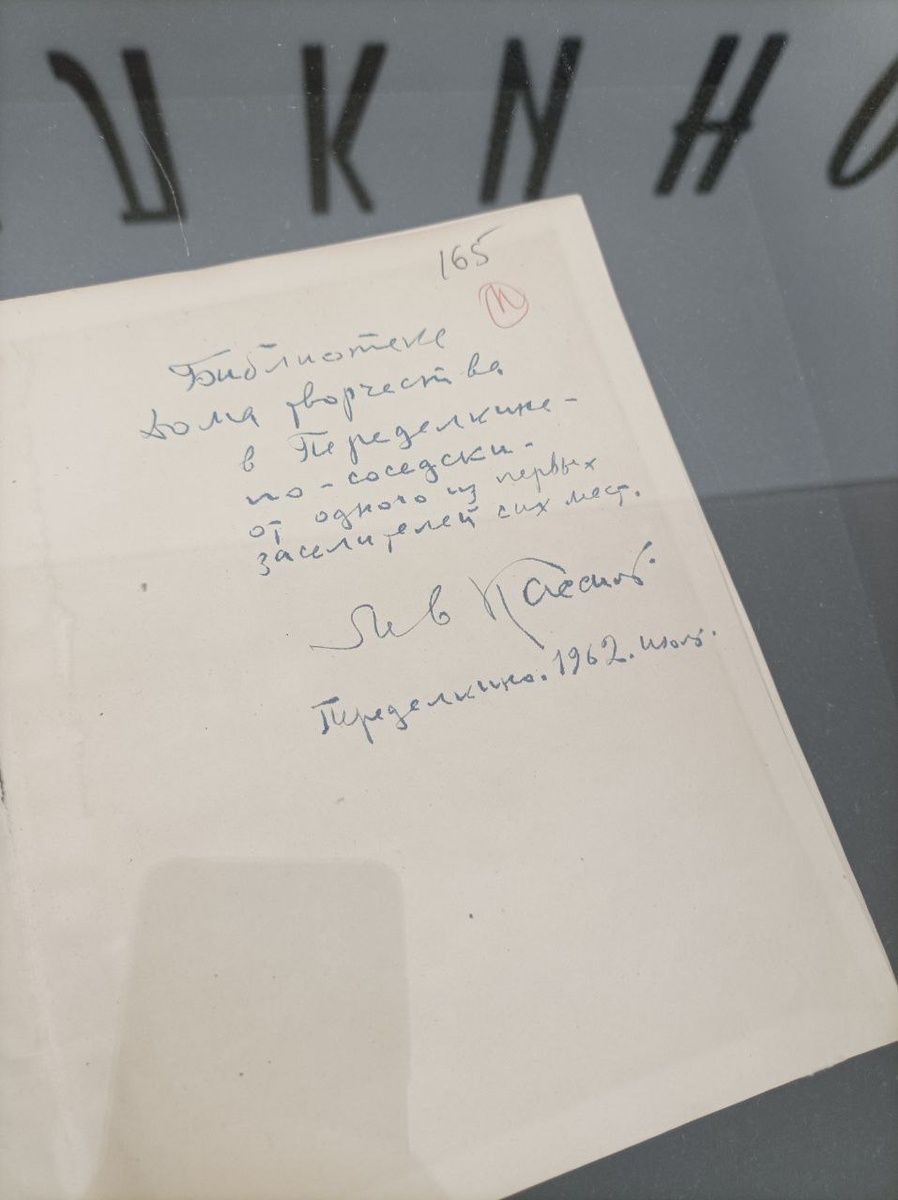 УШКИНО
165
Библиотеке
Дома творчества
в Переделкине -
по-соседски -
от одного из первых
заселителей сих мест.
Лев Кассиль
Переделкино. 1962. июль.